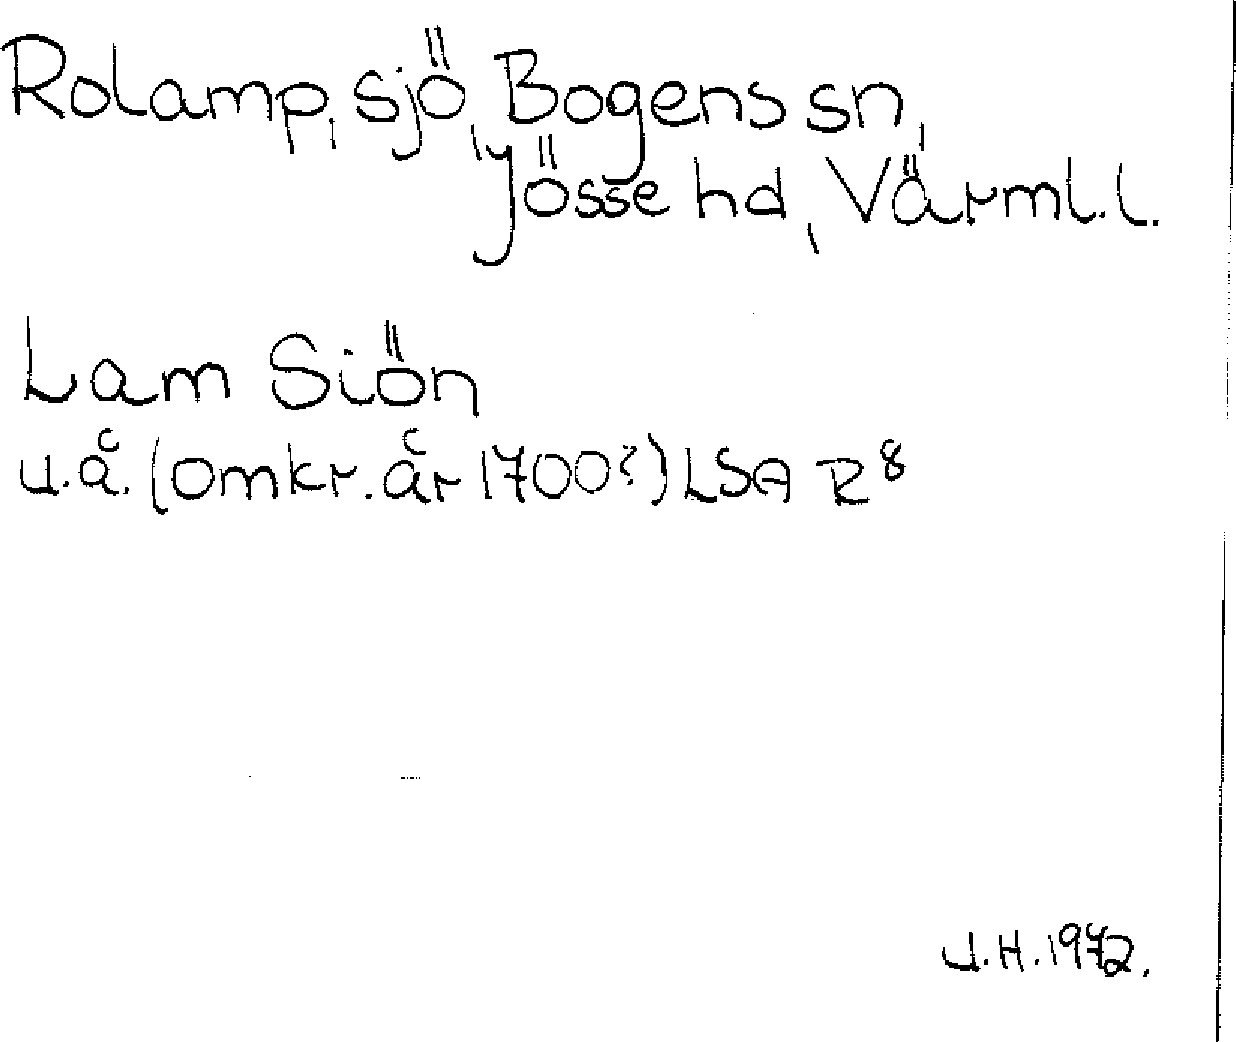 Rolamp, sjö, Bogens sn,
Jösse hd, Värml.l.
Lam Siön
u.å. (omkr. år 1700?) LSA R8
J.H. 1972.